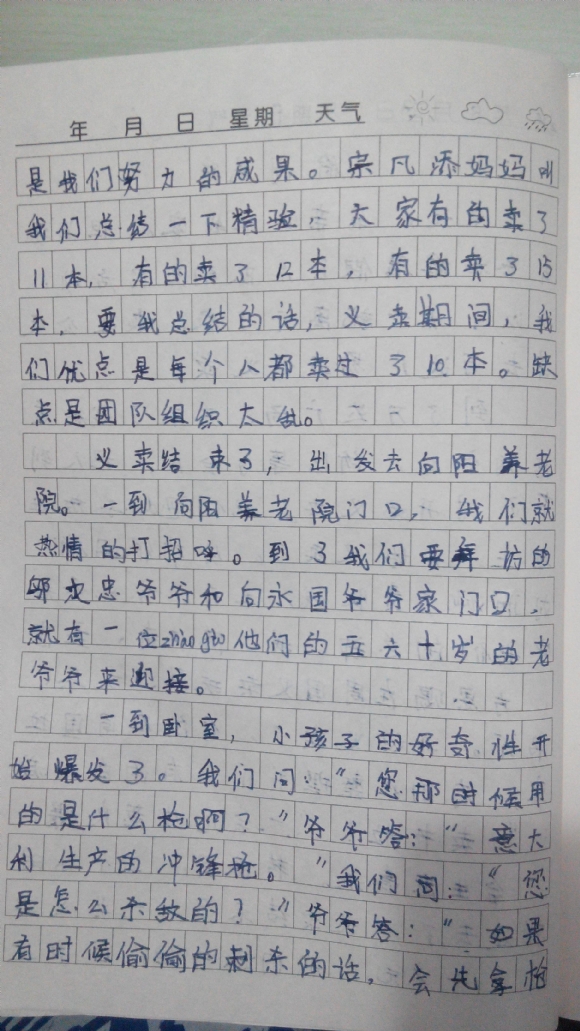 年 月 日 星期 天气
是我们努力的成果。宗凡添妈妈叫
我们总结一下精验。大家有的卖了
11本，有的卖了12本，有的卖了15
本，要我总结的话，义卖期间，我
们优点是每个人都卖过了10本。缺
点是团队组织太乱。
义卖结束了，出发去向阳养老
院。一到向阳养老院门口，我们就
热情的打招呼。到了我们要拜访的
忠爷爷和向永国爷爷家门口，
就有一位zhào gù他们的五六十岁的老
爷爷来迎接。
一到卧室，小孩子的好奇性开
始爆发了。我们问“您那时候用
的是什么枪啊？”爷爷答：“意大
利生产的冲锋枪。”我们问：“您
是怎么杀敌的？”爷爷答：“如果
有时候偷偷的刺杀的话，会先拿枪